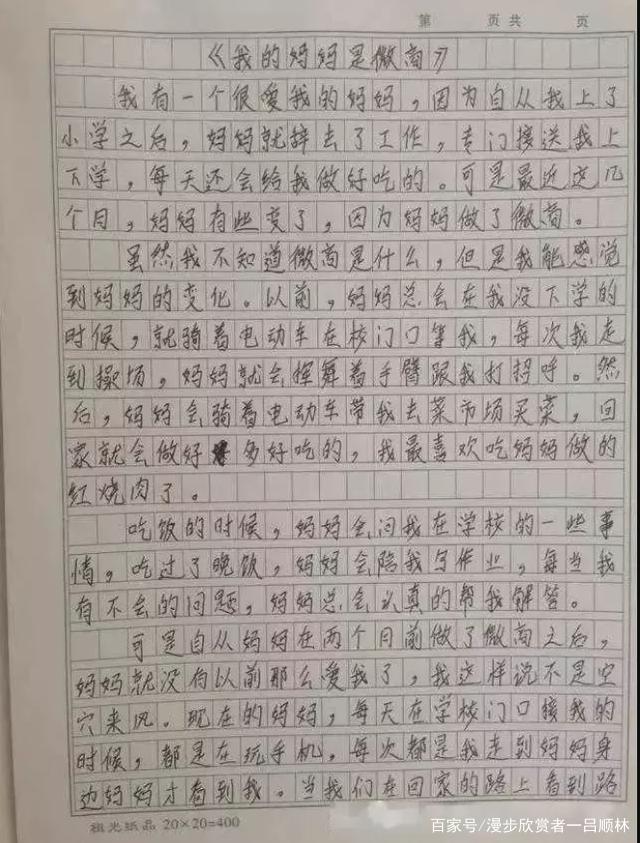 第 页 共 页
《我的妈妈是微商》
我有一个很爱我的妈妈，因为自从我上了
小学之后，妈妈就辞去了工作，专门接送我上
下学，每天还会给我做好吃的。可是最近这几
个月，妈妈有些变了，因为妈妈做了微商。
虽然我不知道微商是什么，但是我能感觉
到妈妈的变化。以前，妈妈总会在我没下学的
时候，就骑着电动车在校门口等我，每次我走
到操场，妈妈就会挥舞着手臂跟我打招呼。然
后，妈妈会骑着电动车带我去菜市场买菜，回
家就会做好多好吃的，我最喜欢吃妈妈做的
红烧肉了。
吃饭的时候，妈妈会问我在学校的一些事
情，吃过了晚饭，妈妈会陪我写作业，每当我
有不会的问题，妈妈总会认真的帮我解答。
可是自从妈妈在两个月前做了微商之后，
妈妈就没有以前那么爱我了，我这样说不是空
穴来风。现在的妈妈，每天在学校门口接我的
时候，都是在玩手机，每次都是我走到妈妈身
边妈妈才看到我。当我们在回家的路上看到路
祖光纸品 20×20=400
百家号/漫步欣赏者一吕顺林